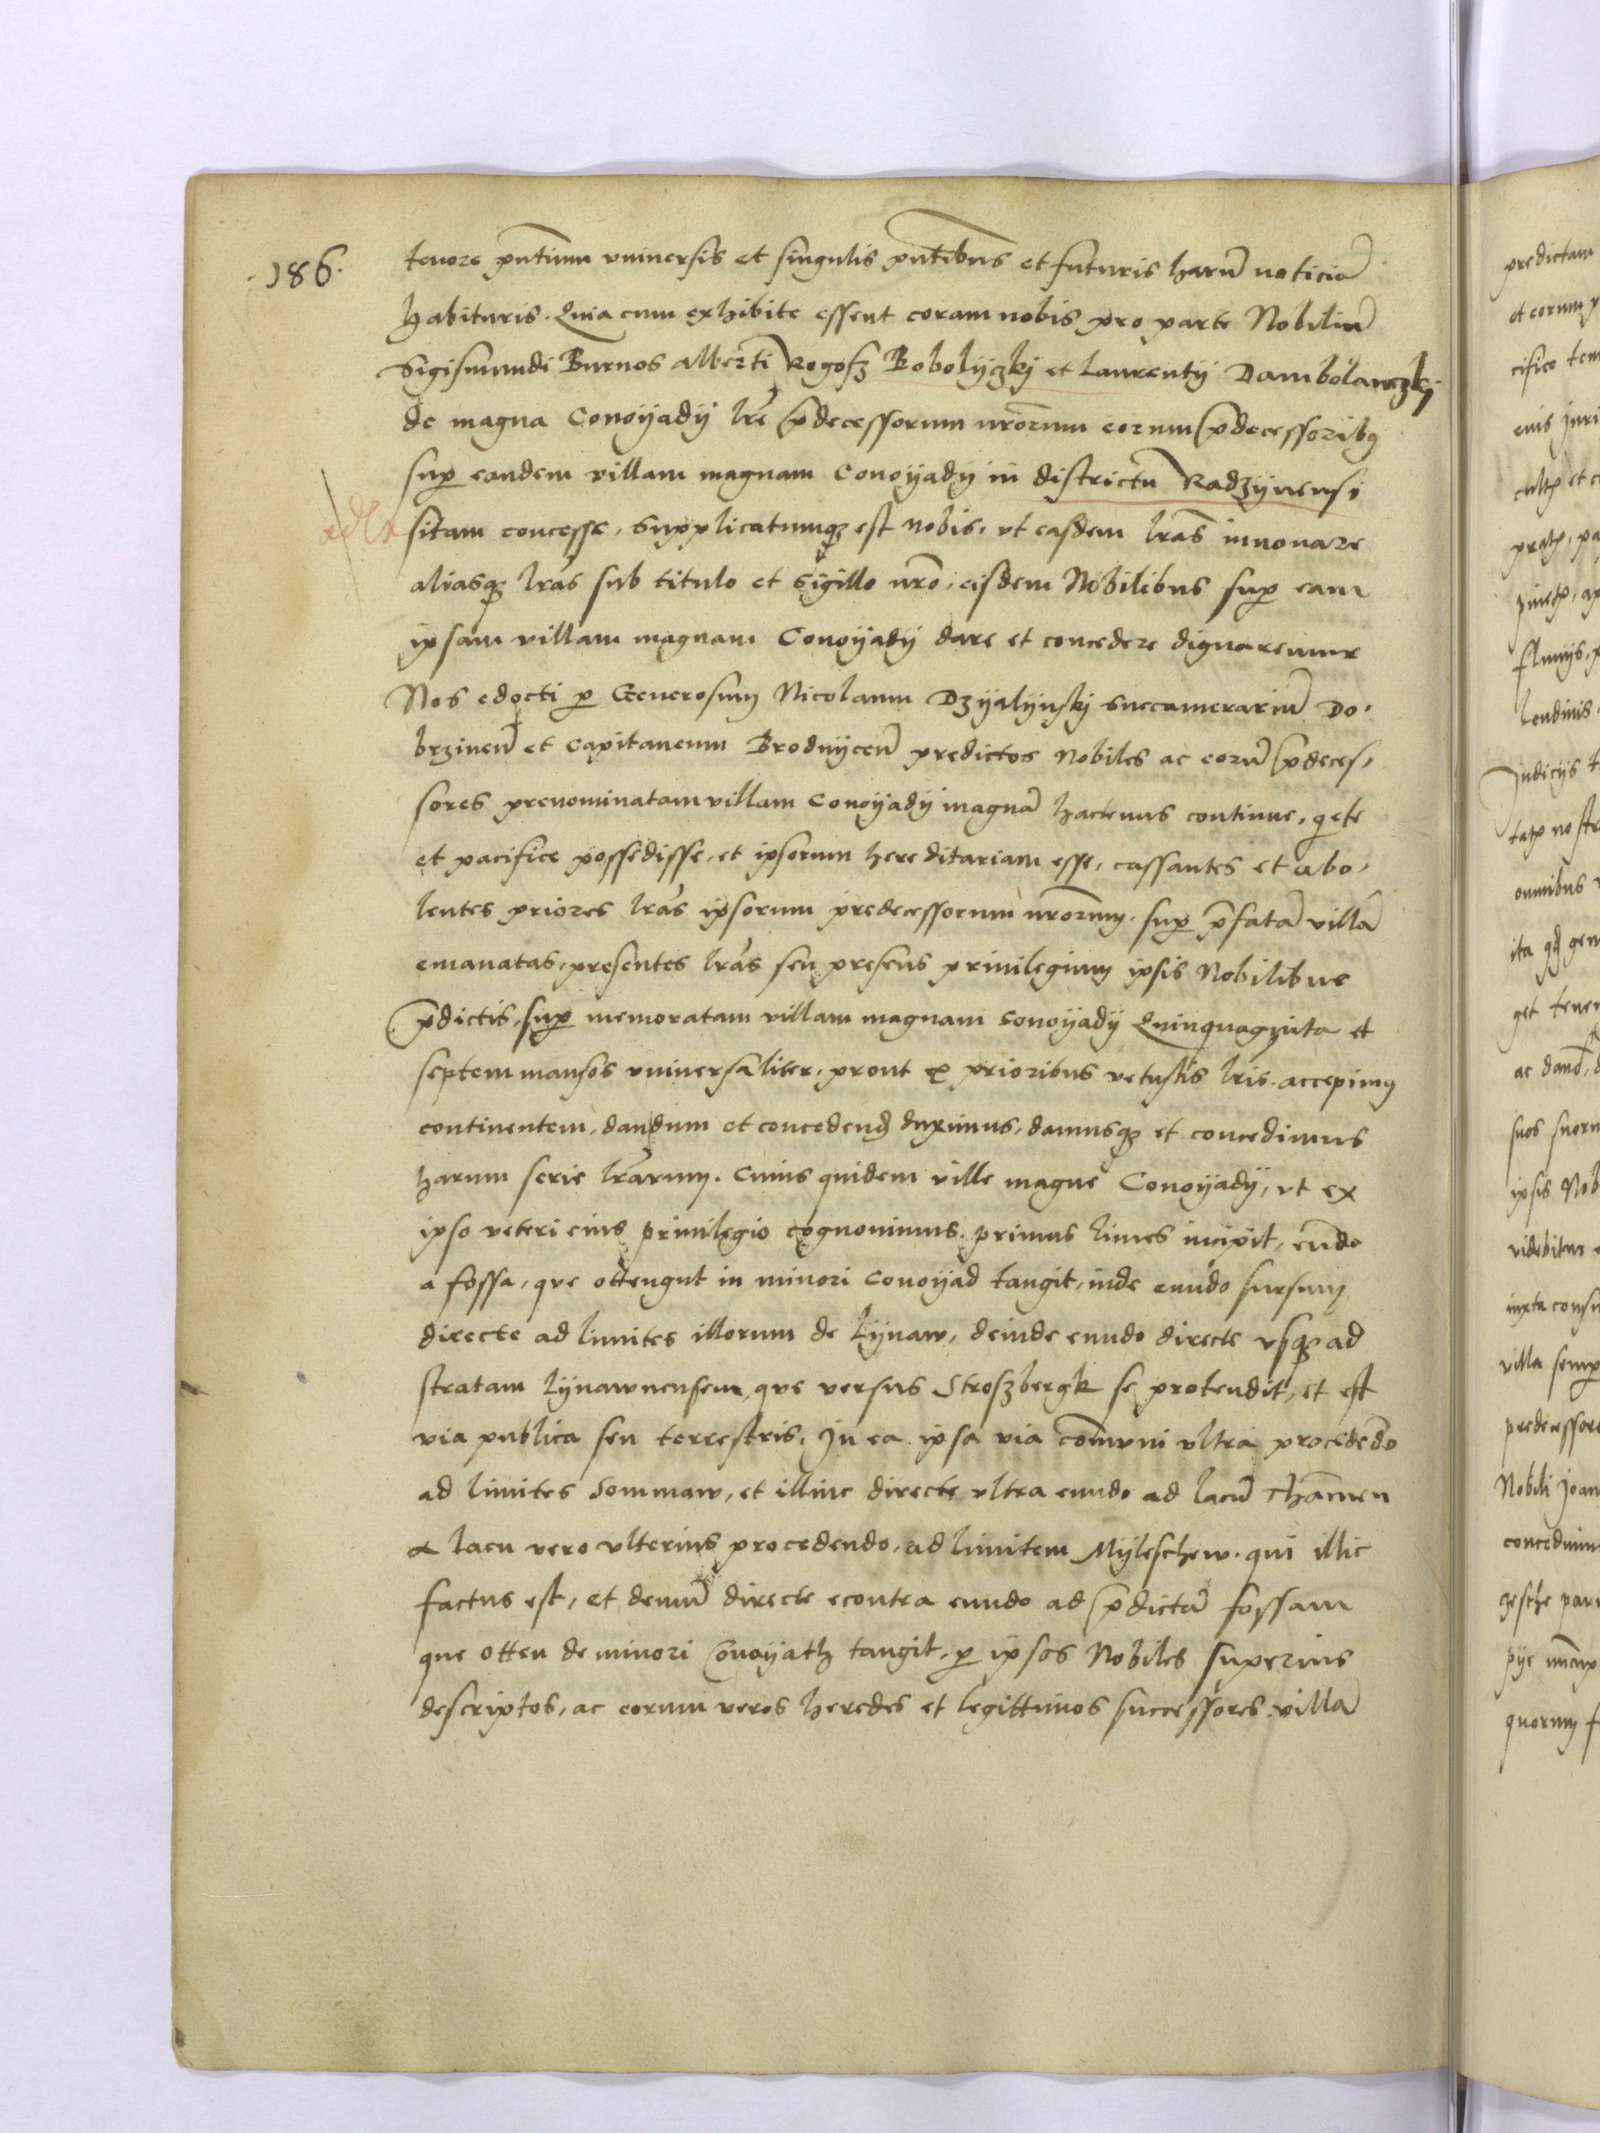 .186.
tenore pntium vniuersis et singulis pntibus et futuris harū noticiā
habituris. Quia cum exhibite essent coram nobis pro parte Nobiliū
Sigismundi Burnos alberti Rogosz Robolyczkj et Laurentij Dambolanczkj
de magna Conoyady lre p̄decessorum nrorum eorum p̄decessoribus
sup eandem villam magnam Conoyady in districtu Radzynensi
sitam concesse, Supplicatumq; est nobis, vt easdem lras innouare
aliasq; lras sub titulo et sigillo nro, eisdem Nobilibus sup eam
ipsam villam magnam Conoyady dare et concedere dignaremur
Nos edocti p Generosum Nicolaum Dzyalynskj Succamerariū Do,
brzinen̄ et Capitaneum Brodnycen̄ predictos Nobiles ac eorū p̄deces,
sores prenominatam villam Conoyady magnā hactenus continue, q̄ete
et pacifice possedisse, et ipsorum hereditariam esse, cassantes et abo,
lentes priores lras ipsorum predecessorum nrorum. sup p̄fatā villā
emanatas, presentes lras seu presens priuilegium ipsis Nobilibus
p̄dictis, sup memoratam villam magnam Conoyady Quinquaginta et
septem mansos vniuersaliter, prout ex prioribus vetustis lris accepimus
continentem, dandum et concedend̄ duximus, damusq; et concedimus
harum serie lrarum. Cuius quidem ville magne Conoyady, vt ex
ipso veteri eius priuilegio cognouimus, primus limes incipit, eūdo
a fossa, que ottengut in minori Conoyad tangit, inde eundo sursum
directe ad limites illorum de Lynaw, deinde eundo directe vsq; ad
stratam lynawnensem, que versus Stroszbergk se protendit, et est
via publica seu terrestris. In ea ipsa via com̄uni vltra procedēdo
ad limites Sommaw, et illinc directe vltra eundo ad lacū Tham̄en
a lacu vero vlterius procedendo, ad limitem Myleschew. qui illic
factus est, et demū directe econtra eundo ad p̄dictā fossam
que otten de minori Conoyath tangit, p ipsos Nobiles superius
descriptos, ac eorum veros heredes et legittimos successores villā